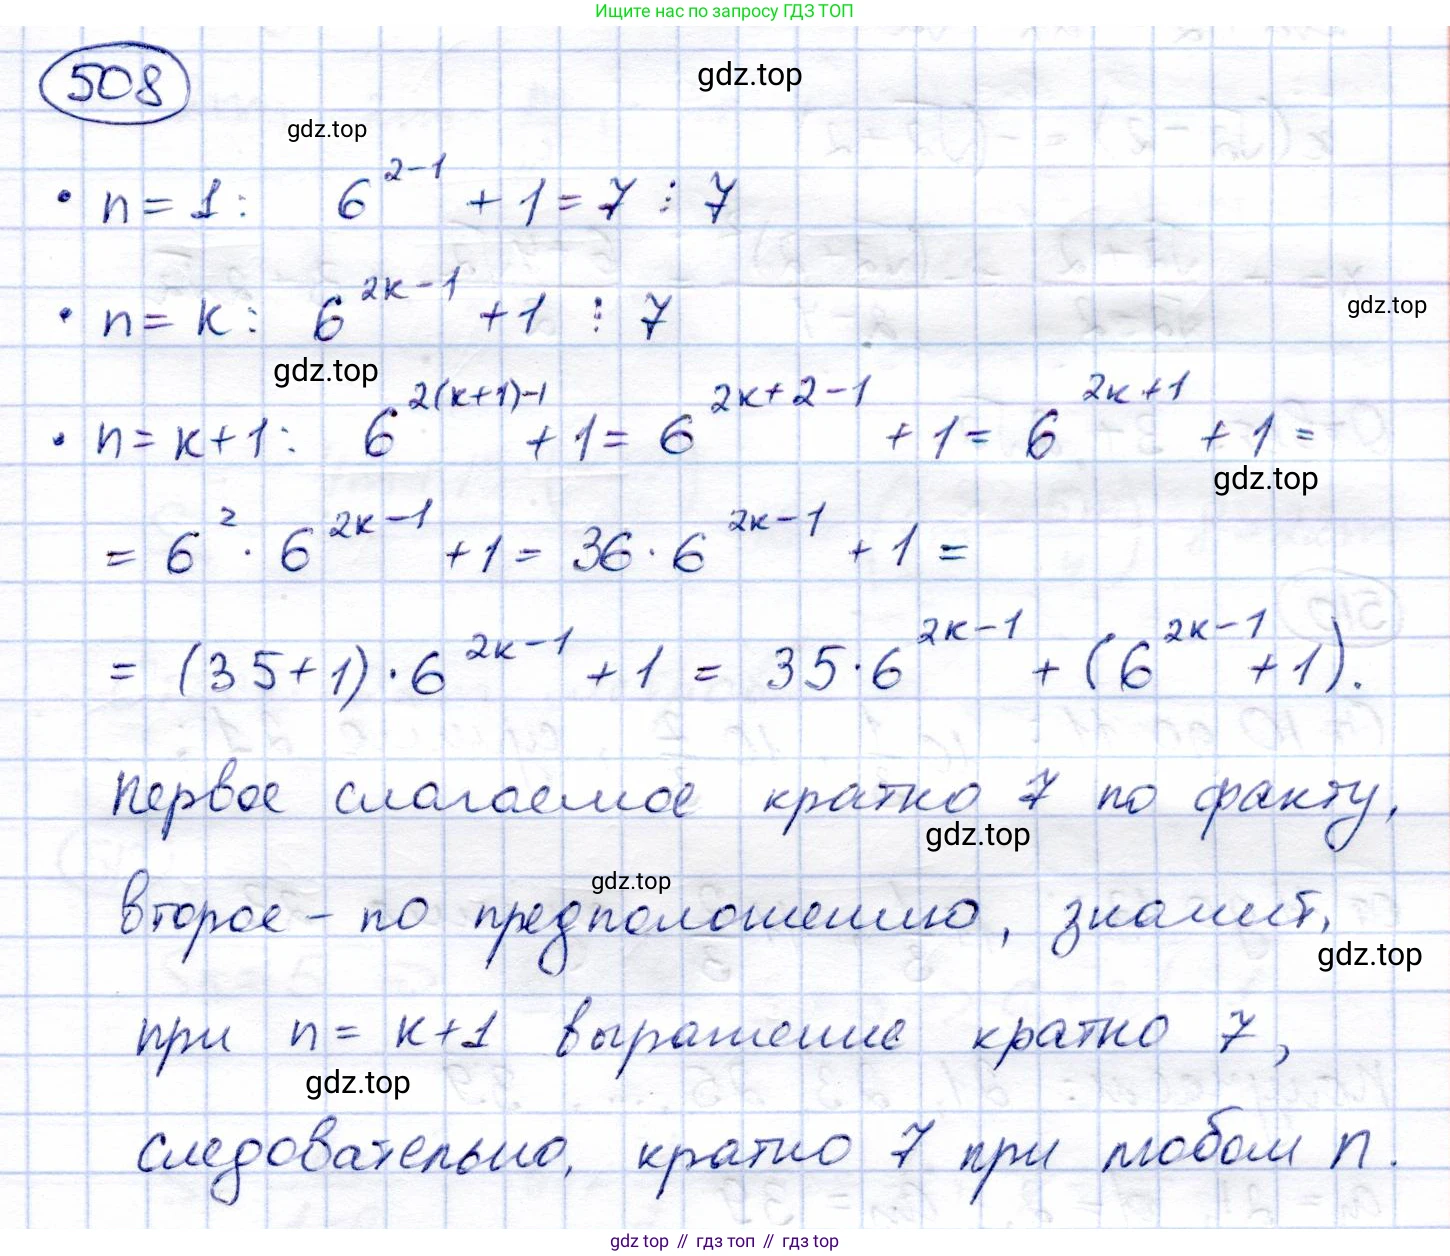 Ищите нас по запросу ГДЗ ТОП
508
gdz.top
gdz.top
• n = 1 : 6^{2-1} + 1 = 7 ⋮ 7
• n = к : 6^{2к-1} + 1 ⋮ 7
gdz.top
gdz.top
• n = к+1 : 6^{2(к+1)-1} + 1 = 6^{2к+2-1} + 1 = 6^{2к+1} + 1 =
gdz.top
= 6^2 · 6^{2к-1} + 1 = 36 · 6^{2к-1} + 1 =
= (35+1) · 6^{2к-1} + 1 = 35 · 6^{2к-1} + (6^{2к-1} + 1).
первое слагаемое кратно 7 по факту,
gdz.top
gdz.top
второе - по предположению, значит,
gdz.top
при n = к+1 выражение кратно 7,
gdz.top
следовательно, кратно 7 при любом n.
gdz top // гдз топ // гдз top